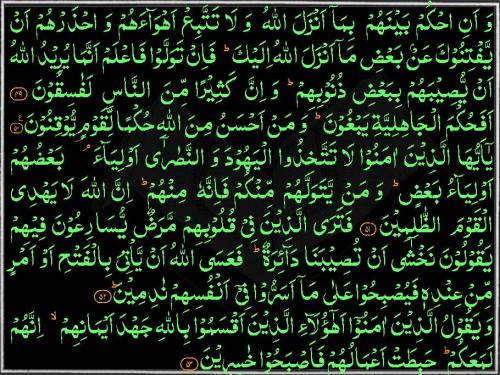 وَ اَنِ احْكُمْ بَیْنَهُمْ بِمَاۤ اَنْزَلَ اللّٰهُ وَ لَا تَتَّبِعْ اَهْوَآءَهُمْ وَ احْذَرْهُمْ اَنْ
یَّفْتِنُوْكَ عَنْۢ بَعْضِ مَاۤ اَنْزَلَ اللّٰهُ اِلَیْكَ ؕ فَاِنْ تَوَلَّوْا فَاعْلَمْ اَنَّمَا یُرِیْدُ اللّٰهُ
اَنْ یُّصِیْبَهُمْ بِبَعْضِ ذُنُوْبِهِمْ ؕ وَ اِنَّ كَثِیْرًا مِّنَ النَّاسِ لَفٰسِقُوْنَ ﴿۴۹﴾
اَفَحُكْمَ الْجَاهِلِیَّةِ یَبْغُوْنَ ؕ وَ مَنْ اَحْسَنُ مِنَ اللّٰهِ حُكْمًا لِّقَوْمٍ یُّوْقِنُوْنَ ﴿۵۰﴾
یٰۤاَیُّهَا الَّذِیْنَ اٰمَنُوْا لَا تَتَّخِذُوا الْیَهُوْدَ وَ النَّصٰرٰۤی اَوْلِیَآءَ ۘ بَعْضُهُمْ
اَوْلِیَآءُ بَعْضٍ ؕ وَ مَنْ یَّتَوَلَّهُمْ مِّنْكُمْ فَاِنَّهٗ مِنْهُمْ ؕ اِنَّ اللّٰهَ لَا یَهْدِی
الْقَوْمَ الظّٰلِمِیْنَ ﴿۵۱﴾ فَتَرَی الَّذِیْنَ فِیْ قُلُوْبِهِمْ مَّرَضٌ یُّسَارِعُوْنَ فِیْهِمْ
یَقُوْلُوْنَ نَخْشٰۤی اَنْ تُصِیْبَنَا دَآئِرَةٌ ؕ فَعَسَی اللّٰهُ اَنْ یَّاْتِیَ بِالْفَتْحِ اَوْ اَمْرٍ
مِّنْ عِنْدِهٖ فَیُصْبِحُوْا عَلٰی مَاۤ اَسَرُّوْا فِیْۤ اَنْفُسِهِمْ نٰدِمِیْنَ ﴿۵۲﴾
وَ یَقُوْلُ الَّذِیْنَ اٰمَنُوْۤا اَهٰۤؤُلَآءِ الَّذِیْنَ اَقْسَمُوْا بِاللّٰهِ جَهْدَ اَیْمَانِهِمْ ۙ اِنَّهُمْ
لَمَعَكُمْ ؕ حَبِطَتْ اَعْمَالُهُمْ فَاَصْبَحُوْا خٰسِرِیْنَ ﴿۵۳﴾